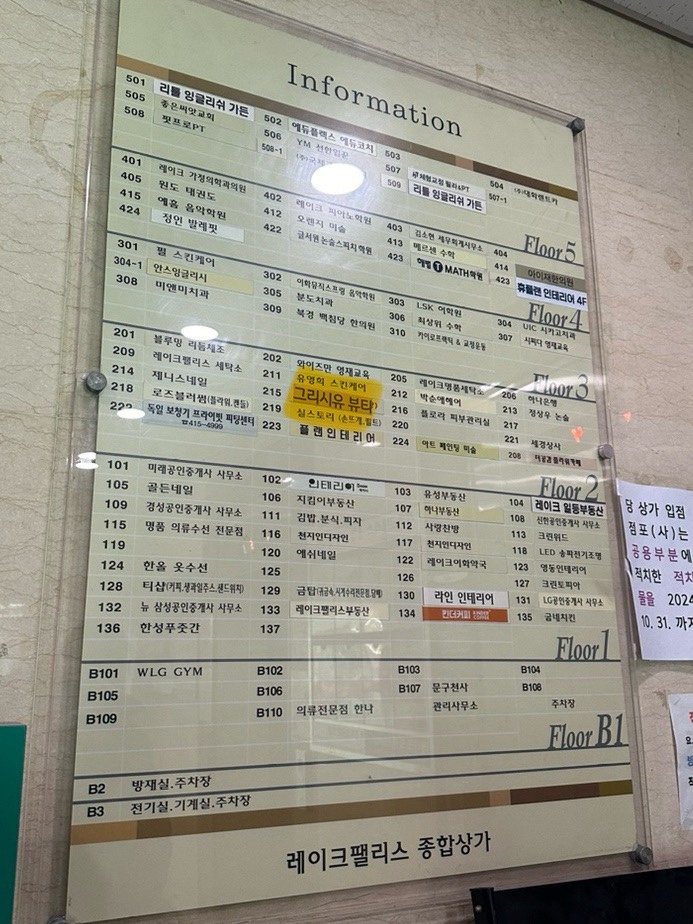 Information
501 리틀 잉글리쉬 가든 502 에듀플렉스 에듀코치 503 504 (주)대화렌트카
505 좋은씨앗교회 506 YM 선한일꾼 507 체험교정 필라&PT 507-1
508 핏프로PT 508-1 509 리틀 잉글리쉬 가든
Floor 5
401 레이크 가정의학과의원 402 레이크 피아노학원 403 김소현 세무회계사무소 404 아이재한의원
405 원도 태권도 412 오렌지 미술 413 메르센 수학 414
415 예홈 음악학원 422 글서원 논술스피치학원 423 해법 MATH학원 423 휴플랜 인테리어 4F
424 정인 발레핏
Floor 4
301 필 스킨케어 302 이화뮤직스프링 음악학원 303 LSK 어학원 304 UIC 시카고치과
304-1 안스잉글리시 305 분도치과 306 최상위 수학 307 시찌다 영재교육
308 미앤미치과 309 북경 백침당 한의원 310 카이로프랙틱 & 교정운동
Floor 3
201 블루밍 리듬체조 202 와이즈만 영재교육 205 레이크명품세탁소 206 하나은행
209 레이크팰리스 세탁소 211 유영희 스킨케어 212 박순애헤어 213 정상우 논술
214 제니스네일 215 그리시유 뷰티 216 플로라 피부관리실 217
218 로즈블러썸(플라워,캔들) 219 실스토리 (손뜨개,퀼트) 220 221 세경상사
222 독일 보청기 프라이빗 피팅센터 ☎415-4999 223 플랜인테리어 224 아트 페인팅 미술 208 더공감 플라워카페
Floor 2
101 미래공인중개사 사무소 102 인테리어 103 유성부동산 104 레이크 일등부동산
105 골든네일 106 지킴이부동산 107 하나부동산 108 신한공인중개사 사무소
109 경성공인중개사 사무소 111 김밥.분식.피자 112 사랑찬방 113 크린위드
115 명품 의류수선 전문점 116 천지인디자인 117 천지인디자인 118 LED 송파전기조명
119 120 애쉬네일 122 레이크이화약국 123 영동인테리어
124 한올 옷수선 125 126 127 크린토피아
128 티샵(커피,생과일주스,샌드위치) 129 금탑(귀금속,시계수리전문점,담배) 130 라인 인테리어 131 LG공인중개사 사무소
132 뉴 삼성공인중개사 사무소 133 레이크팰리스부동산 134 킨더커피 135 굽네치킨
136 한성푸줏간 137
Floor 1
B101 WLG GYM B102 B103 B104
B105 B106 B107 문구천사 B108
B109 B110 의류전문점 한나 관리사무소 주차장
Floor B1
B2 방재실.주차장
B3 전기실.기계실.주차장
레이크팰리스 종합상가
당 상가 입점
점포(사)는
공용부분에
적치한 적치
물을 2024
10. 31. 까지